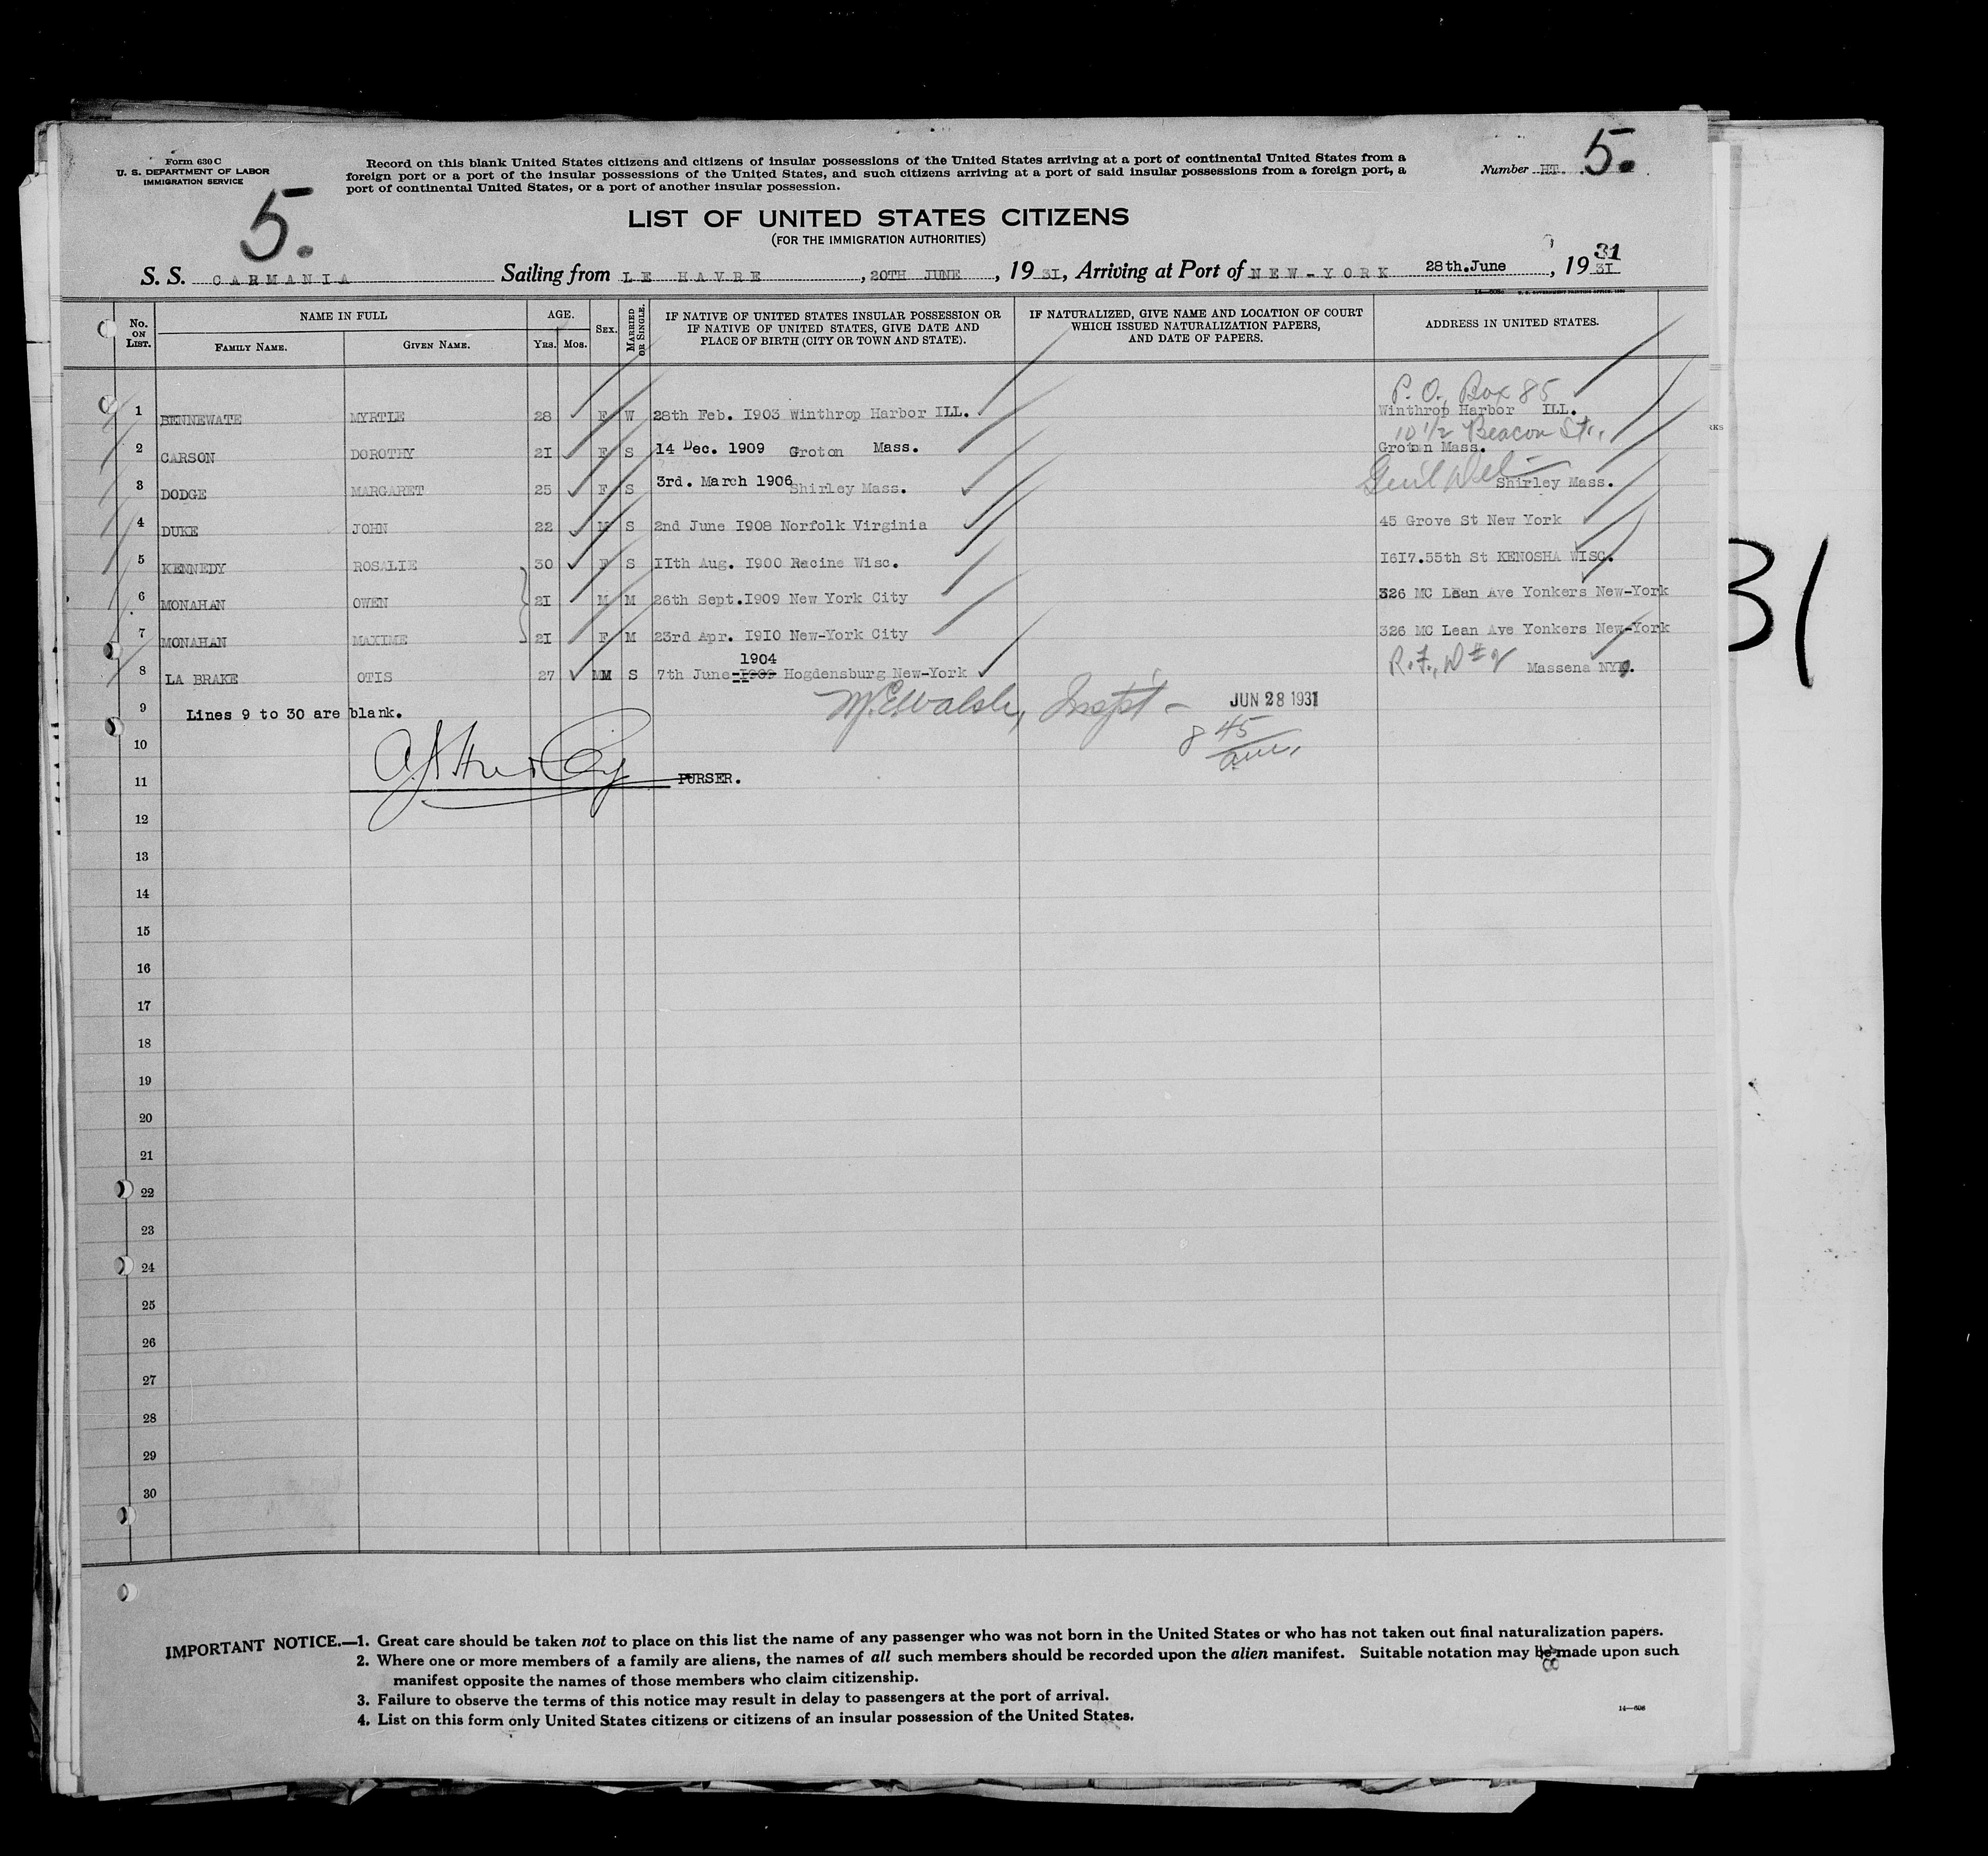 Form 630 C
U. S. DEPARTMENT OF LABOR
IMMIGRATION SERVICE
Record on this blank United States citizens and citizens of insular possessions of the United States arriving at a port of continental United States from a
foreign port or a port of the insular possessions of the United States, and such citizens arriving at a port of said insular possessions from a foreign port, a
port of continental United States, or a port of another insular possession.
Number HT. 5.
5.
LIST OF UNITED STATES CITIZENS
(FOR THE IMMIGRATION AUTHORITIES)
S. S. CARMANIA Sailing from LE HAVRE, 20TH JUNE, 19 3I, Arriving at Port of NEW-YORK 28th.June, 19 3I 31
No. ON LIST. NAME IN FULL FAMILY NAME. GIVEN NAME. AGE. YRS. MOS. SEX. MARRIED OR SINGLE. IF NATIVE OF UNITED STATES INSULAR POSSESSION OR IF NATIVE OF UNITED STATES, GIVE DATE AND PLACE OF BIRTH (CITY OR TOWN AND STATE). IF NATURALIZED, GIVE NAME AND LOCATION OF COURT WHICH ISSUED NATURALIZATION PAPERS, AND DATE OF PAPERS. ADDRESS IN UNITED STATES.
P. O. Box 85
1 BENNEWATE MYRTLE 28 F W 28th Feb. I903 Winthrop Harbor ILL. Winthrop Harbor ILL.
10 1/2 Beacon St.,
2 CARSON DOROTHY 2I F S 14 Dec. 1909 Groton Mass. Groton Mass.
3 DODGE MARGARET 25 F S 3rd. March 1906 Shirley Mass. Genl Del Shirley Mass.
4 DUKE JOHN 22 M S 2nd June I908 Norfolk Virginia 45 Grove St New York
5 KENNEDY ROSALIE 30 F S IIth Aug. I900 Racine Wisc. I6I7.55th St KENOSHA WISC.
6 MONAHAN OWEN 2I M M 26th Sept.I909 New York City 326 MC Lean Ave Yonkers New-York
7 MONAHAN MAXIME 2I F M 23rd Apr. I9I0 New-York City 326 MC Lean Ave Yonkers New-York
1904
8 LA BRAKE OTIS 27 M S 7th June Hogdensburg New-York R.F.D #2 Massena NY.
9 Lines 9 to 30 are blank. M.E. Walsh, Inspt - JUN 28 1931
10 8 45 am,
11 PURSER.
12
13
14
15
16
17
18
19
20
21
22
23
24
25
26
27
28
29
30
31
IMPORTANT NOTICE.—1. Great care should be taken not to place on this list the name of any passenger who was not born in the United States or who has not taken out final naturalization papers.
2. Where one or more members of a family are aliens, the names of all such members should be recorded upon the alien manifest. Suitable notation may be made upon such
manifest opposite the names of those members who claim citizenship.
3. Failure to observe the terms of this notice may result in delay to passengers at the port of arrival.
4. List on this form only United States citizens or citizens of an insular possession of the United States.
14—606